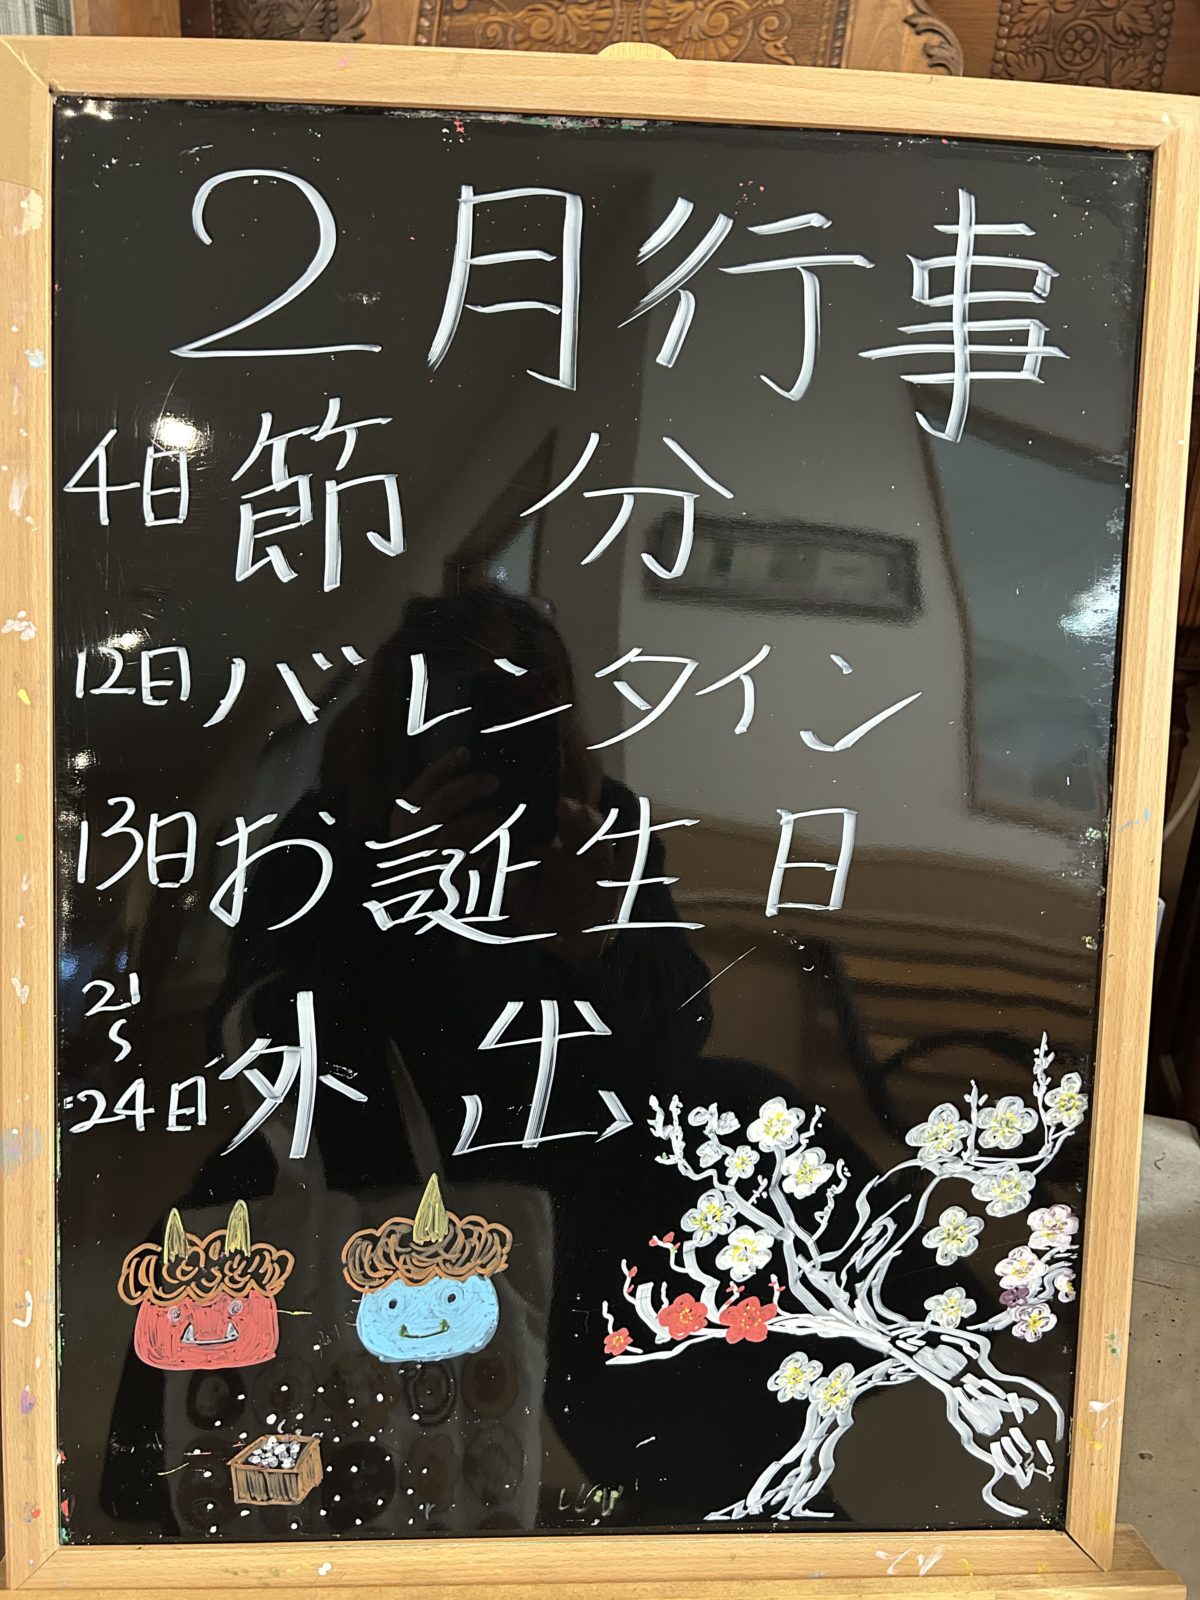 2月行事
4日節分
12日バレンタイン
13日お誕生日
21
〜
24日外出